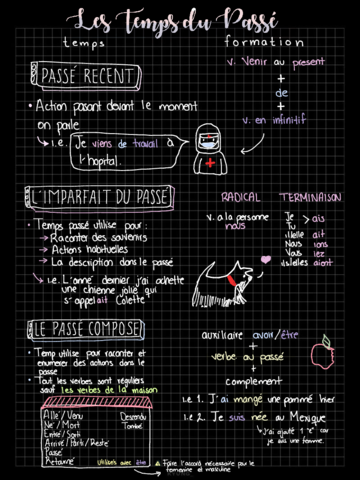 Les Temps du Passé
temps
formation
PASSÉ RECENT
v. Venir au present
+
de
+
v. en infinitif
• Action pasant devant le moment
on parle
→ i.e.
Je viens de travail à
l'hopital.
L'IMPARFAIT DU PASSÉ
RADICAL
TERMINAISON
v. a la personne
nous
Je > ais
Tu
il/elle ait
Nous ions
Vous iez
ils/elles aient
• Temps passé utilise pour:
→ Raconter des souvenirs
→ Actions habituelles
→ La description dans le passé
→ i.e. L'anné dernier j'ai achette
une chienne jolie qui
s'appelait "Colette"
LE PASSÉ COMPOSE
auxiliaire avoir/être
+
verbe au passé
+
complement
• Temp utilise pour raconter et
enumerer des actions dans le
passe
• Tout les verbes sont réguliers
sauf les verbes de la maison
Allé/Venu
Né/Mort
Entré/Sorti
Arrivé/Parti/Resté
Passé
Retourné
Descendu
Tombé
Utilisés avec être
i.e 1. J'ai mangé une pomme hier
i.e 2. Je suis née au Mexique
↳ J'ai ajouté 1 "e" car
je suis une femme.
Faire l'accord nécessaire par le
feminine et masculine